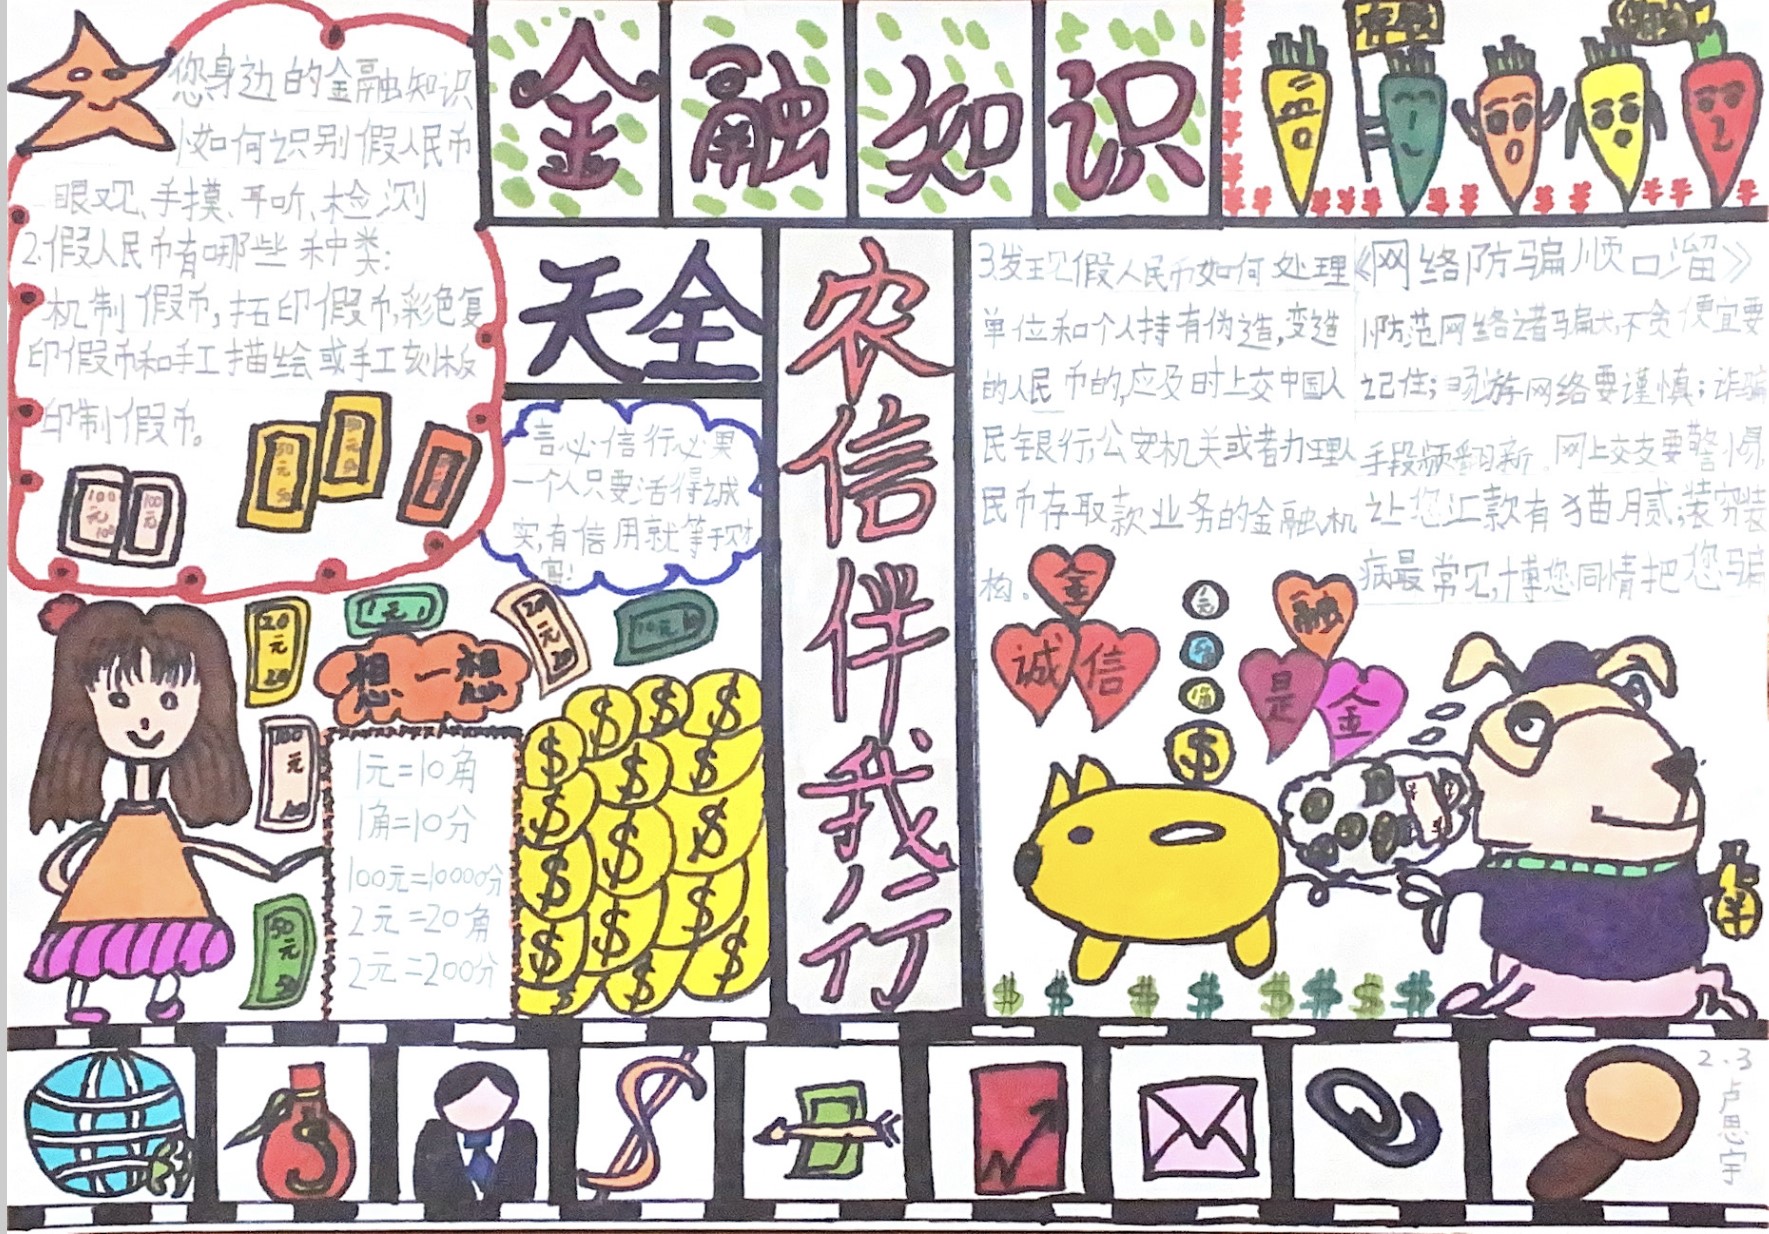 金融知识
天全
农信伴我行
您身边的金融知识
1.如何识别假人民币
眼观、手摸、耳听、检测
2.假人民币有哪些种类:
机制假币,拓印假币,彩色复
印假币和手工描绘或手工刻板
印制假币。
100元100
100元
50元50
20元20
1元1
20元20
10元10
100元100
50元50
言必信行必果
一个人只要活得诚
实,有信用就等于财
富!
想一想
1元=10角
1角=10分
100元=10000分
2元=20角
2元=200分
3.发现假人民币如何处理
单位和个人持有伪造,变造
的人民币的,应及时上交中国人
民银行,公安机关或者办理人
民币存取款业务的金融机
构。
《网络防骗顺口溜》
防范网络诸骗术,不贪便宜要
记住;畅游网络要谨慎;诈骗
手段频翻新,网上交友要警惕,
让您汇款有猫腻;装穷装
病最常见,博您同情把您骗
金
诚信
融
是金
1元
$
¥
2.3
卢思宇